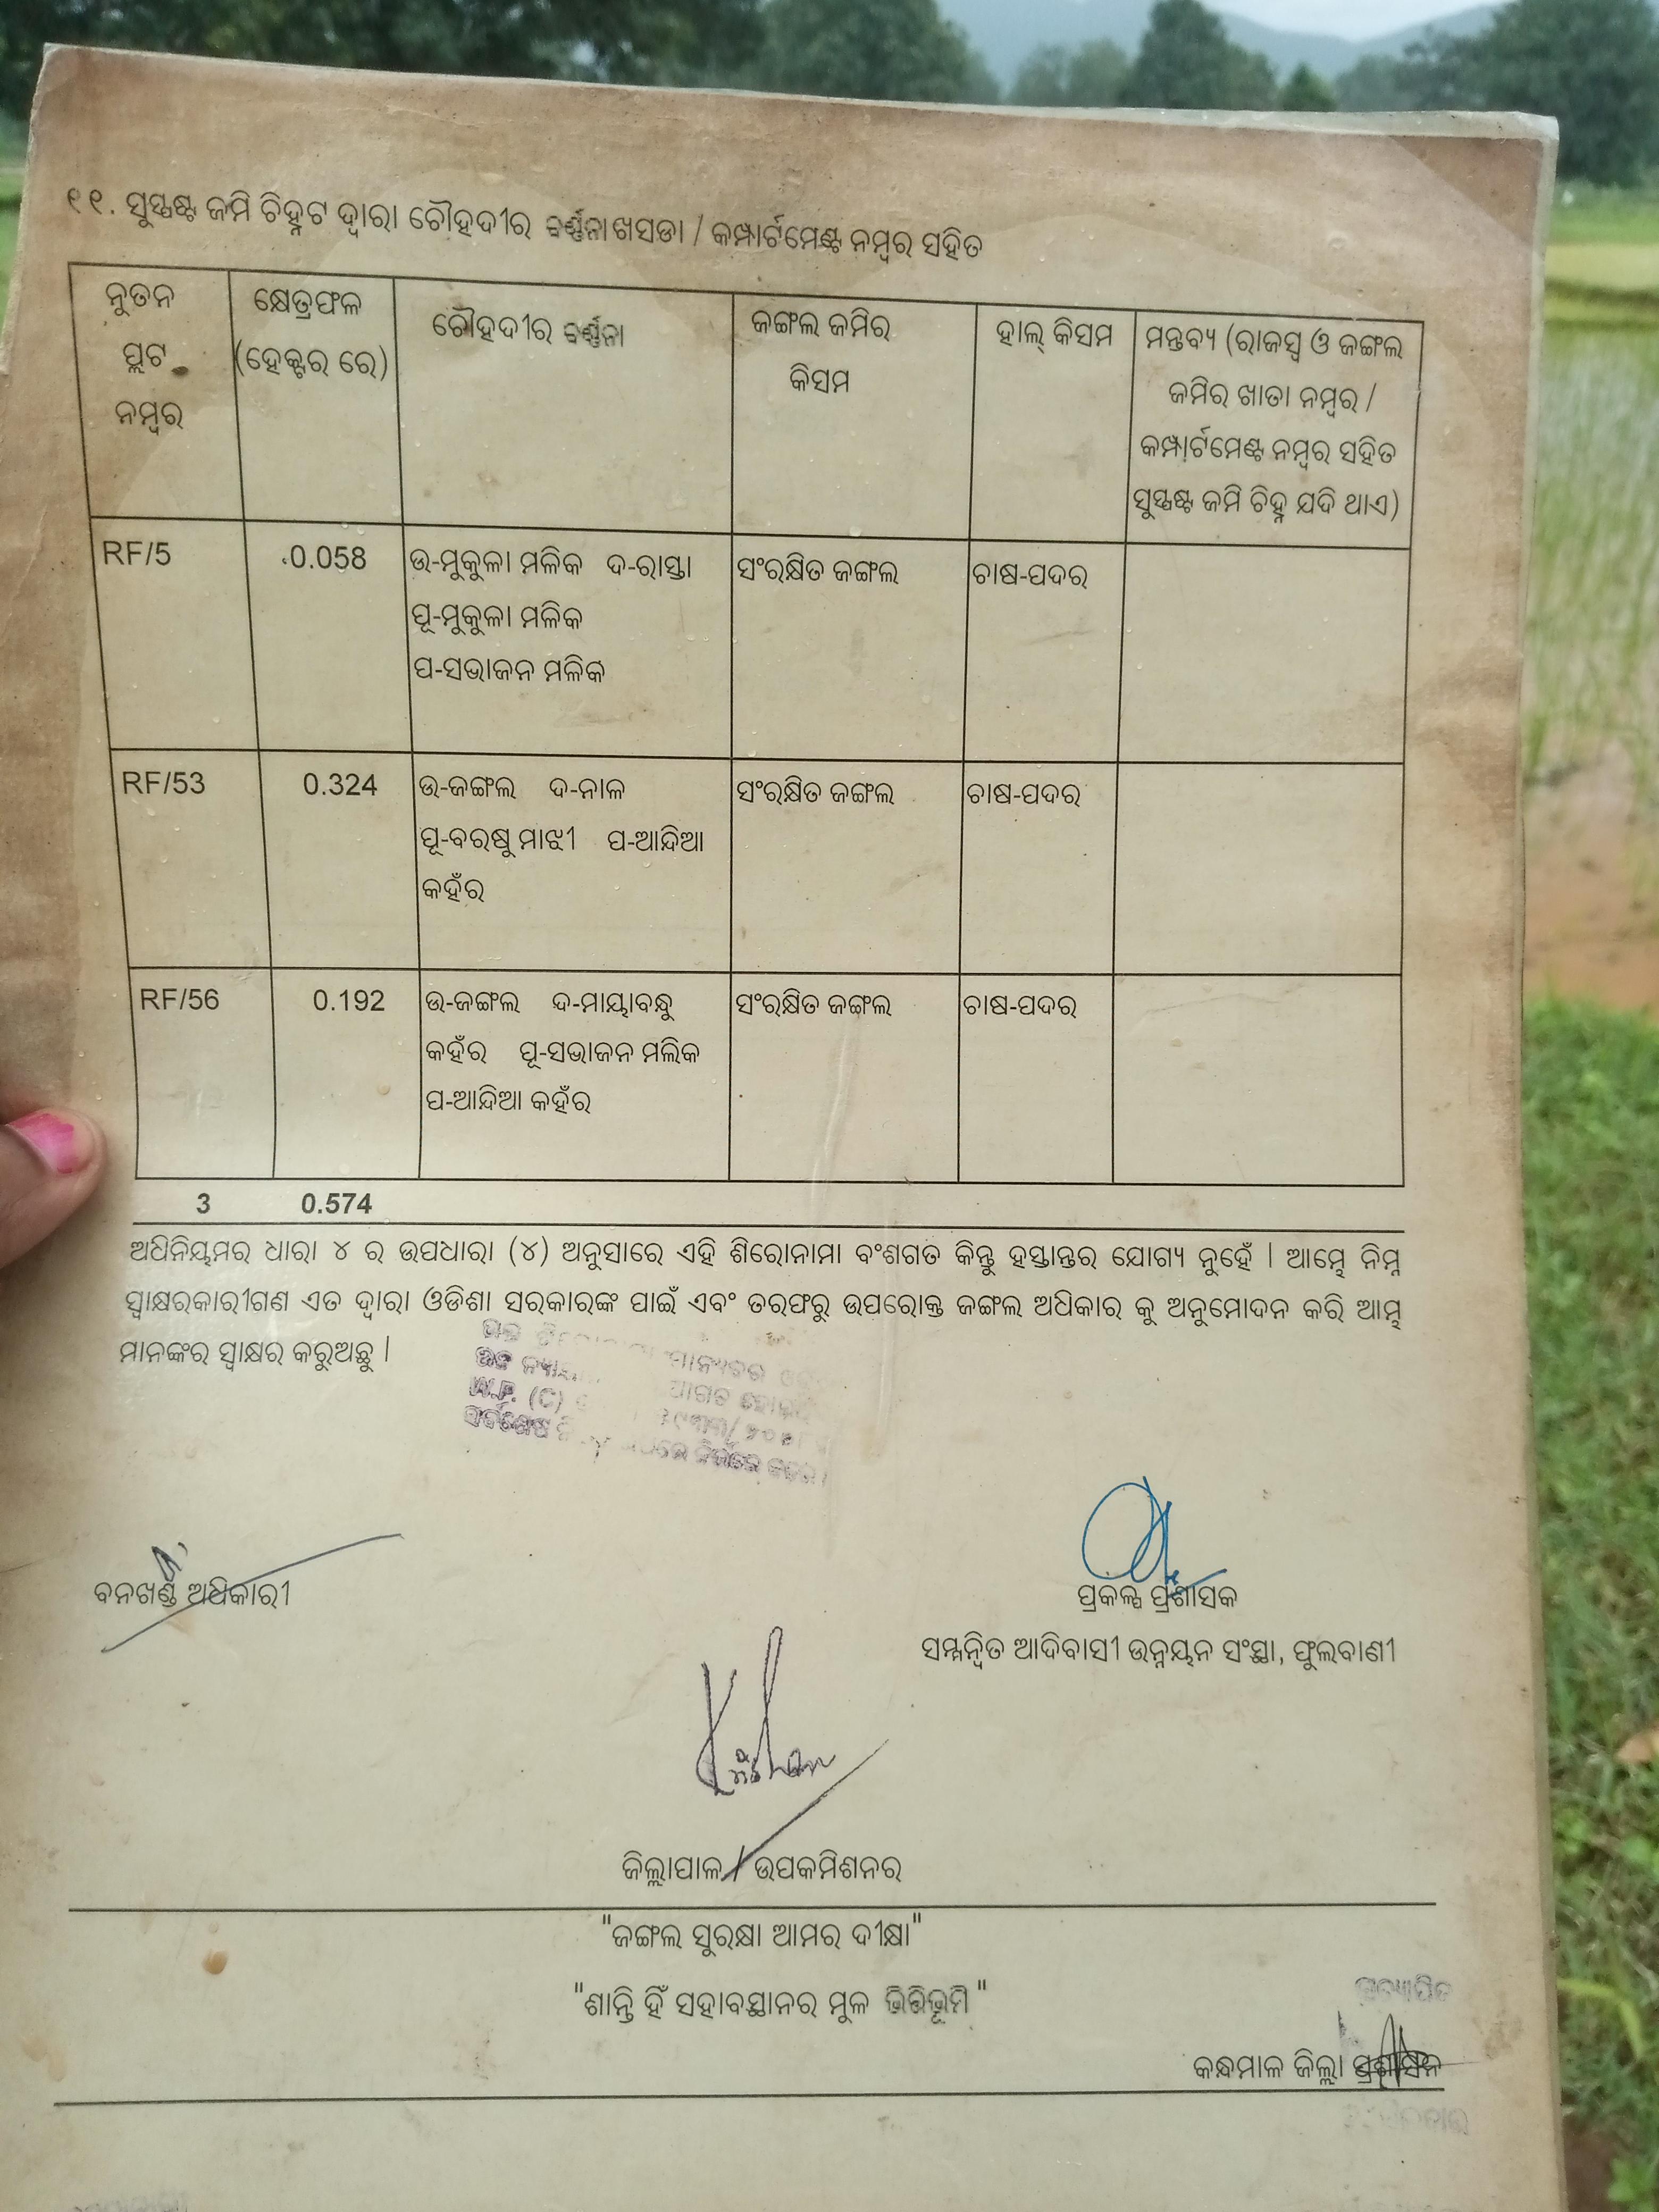 ୧୧. ସୁସ୍ପଷ୍ଟ ଜମି ଚିହ୍ନଟ ଦ୍ୱାରା ଚୌହଦୀର ବର୍ଣ୍ଣନା ଖସଡା / କମ୍ପାର୍ଟମେଣ୍ଟ ନମ୍ବର ସହିତ
ନୁତନ ପ୍ଲଟ ନମ୍ବର
କ୍ଷେତ୍ରଫଳ (ହେକ୍ଟର ରେ)
ଚୌହଦୀର ବର୍ଣ୍ଣନା
ଜଙ୍ଗଲ ଜମିର କିସମ
ହାଲ୍ କିସମ
ମନ୍ତବ୍ୟ (ରାଜସ୍ୱ ଓ ଜଙ୍ଗଲ
ଜମିର ଖାତା ନମ୍ବର /
କମ୍ପାର୍ଟମେଣ୍ଟ ନମ୍ବର ସହିତ
ସୁସ୍ପଷ୍ଟ ଜମି ଚିହ୍ନ ଯଦି ଥାଏ)
RF/5 0.058 ଉ-ମୁକୁଳା ମଳିକ ଦ-ରାସ୍ତା ସଂରକ୍ଷିତ ଜଙ୍ଗଲ ଚାଷ-ପଦର
ପୂ-ମୁକୁଳା ମଳିକ
ପ-ସଭାଜନ ମଳିକ
RF/53 0.324 ଉ-ଜଙ୍ଗଲ ଦ-ନାଳ ସଂରକ୍ଷିତ ଜଙ୍ଗଲ ଚାଷ-ପଦର
ପୂ-ବରଷୁ ମାଝୀ ପ-ଆନ୍ଦିଆ
କହଁର
RF/56 0.192 ଉ-ଜଙ୍ଗଲ ଦ-ମାୟାବନ୍ଧୁ ସଂରକ୍ଷିତ ଜଙ୍ଗଲ ଚାଷ-ପଦର
କହଁର ପୂ-ସଭାଜନ ମଲିକ
ପ-ଆନ୍ଦିଆ କହଁର
3 0.574
ଅଧିନିୟମର ଧାରା ୪ ର ଉପଧାରା (୪) ଅନୁସାରେ ଏହି ଶିରୋନାମା ବଂଶଗତ କିନ୍ତୁ ହସ୍ତାନ୍ତର ଯୋଗ୍ୟ ନୁହେଁ । ଆମ୍ଭେ ନିମ୍ନ
ସ୍ୱାକ୍ଷରକାରୀଗଣ ଏତ ଦ୍ୱାରା ଓଡିଶା ସରକାରଙ୍କ ପାଇଁ ଏବଂ ତରଫରୁ ଉପରୋକ୍ତ ଜଙ୍ଗଲ ଅଧିକାର କୁ ଅନୁମୋଦନ କରି ଆମ୍ଭ
ମାନଙ୍କର ସ୍ୱାକ୍ଷର କରୁଅଛୁ ।
W.P. (C)
ବନଖଣ୍ଡ ଅଧିକାରୀ
ପ୍ରକଳ୍ପ ପ୍ରଶାସକ
ସମ୍ମନ୍ୱିତ ଆଦିବାସୀ ଉନ୍ନୟନ ସଂସ୍ଥା, ଫୁଲବାଣୀ
ଜିଲ୍ଲାପାଳ / ଉପକମିଶନର
"ଜଙ୍ଗଲ ସୁରକ୍ଷା ଆମର ଦୀକ୍ଷା"
"ଶାନ୍ତି ହିଁ ସହାବସ୍ଥାନର ମୁଳ ଭିତ୍ତିଭୂମି"
କନ୍ଧମାଳ ଜିଲ୍ଲା ପ୍ରଶାସନ